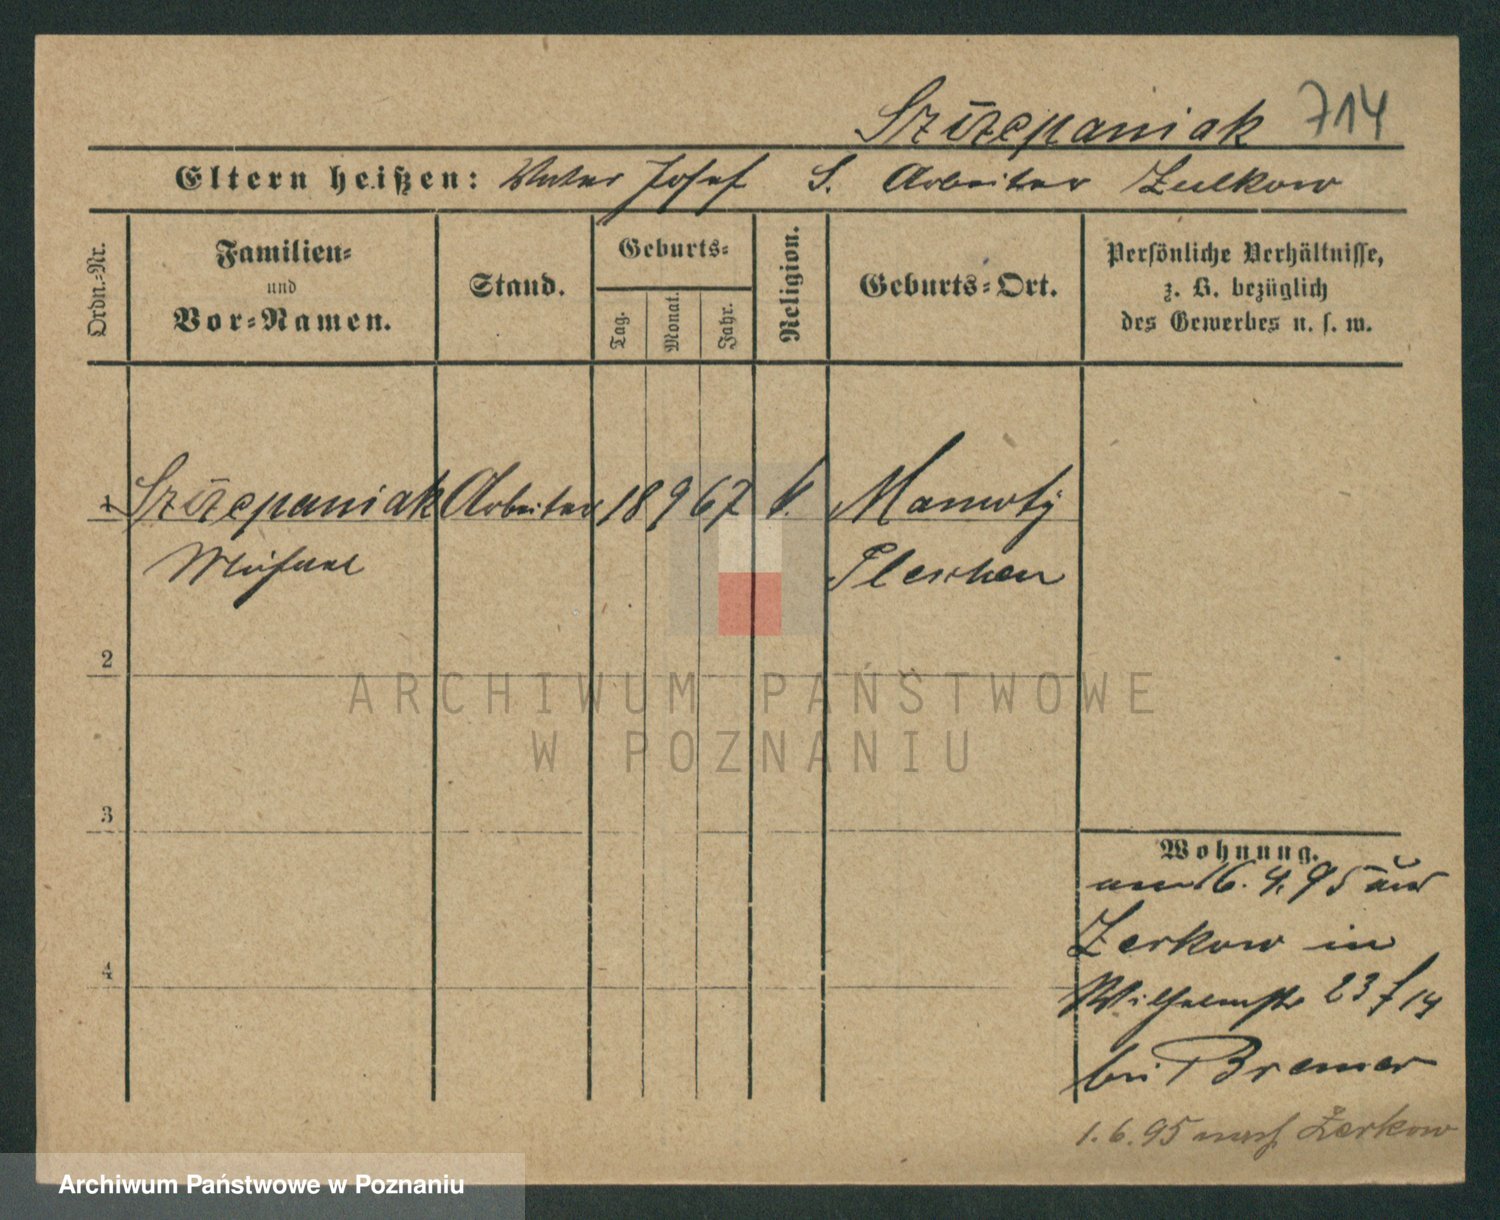 Szczepaniak 714
Eltern heißen: Vater Josef S. Arbeiter Zulkow
Ordn.-Nr.
Familien-
und
Vor-Namen.
Stand.
Geburts-
Tag.
Monat.
Jahr.
Religion.
Geburts-Ort.
Persönliche Verhältnisse,
z. B. bezüglich
des Gewerbes u. s. w.
1 Szczepaniak Arbeiter 18 9 67 k. Mamoty
Michael Pleschen
2
3
4
Wohnung.
am 16. 4. 95 aus
Zerkow in
Wilhelmstr 23 f 14
bei Bremer
1. 6. 95 nach Zerkow
ARCHIWUM PAŃSTWOWE
W POZNANIU
Archiwum Państwowe w Poznaniu